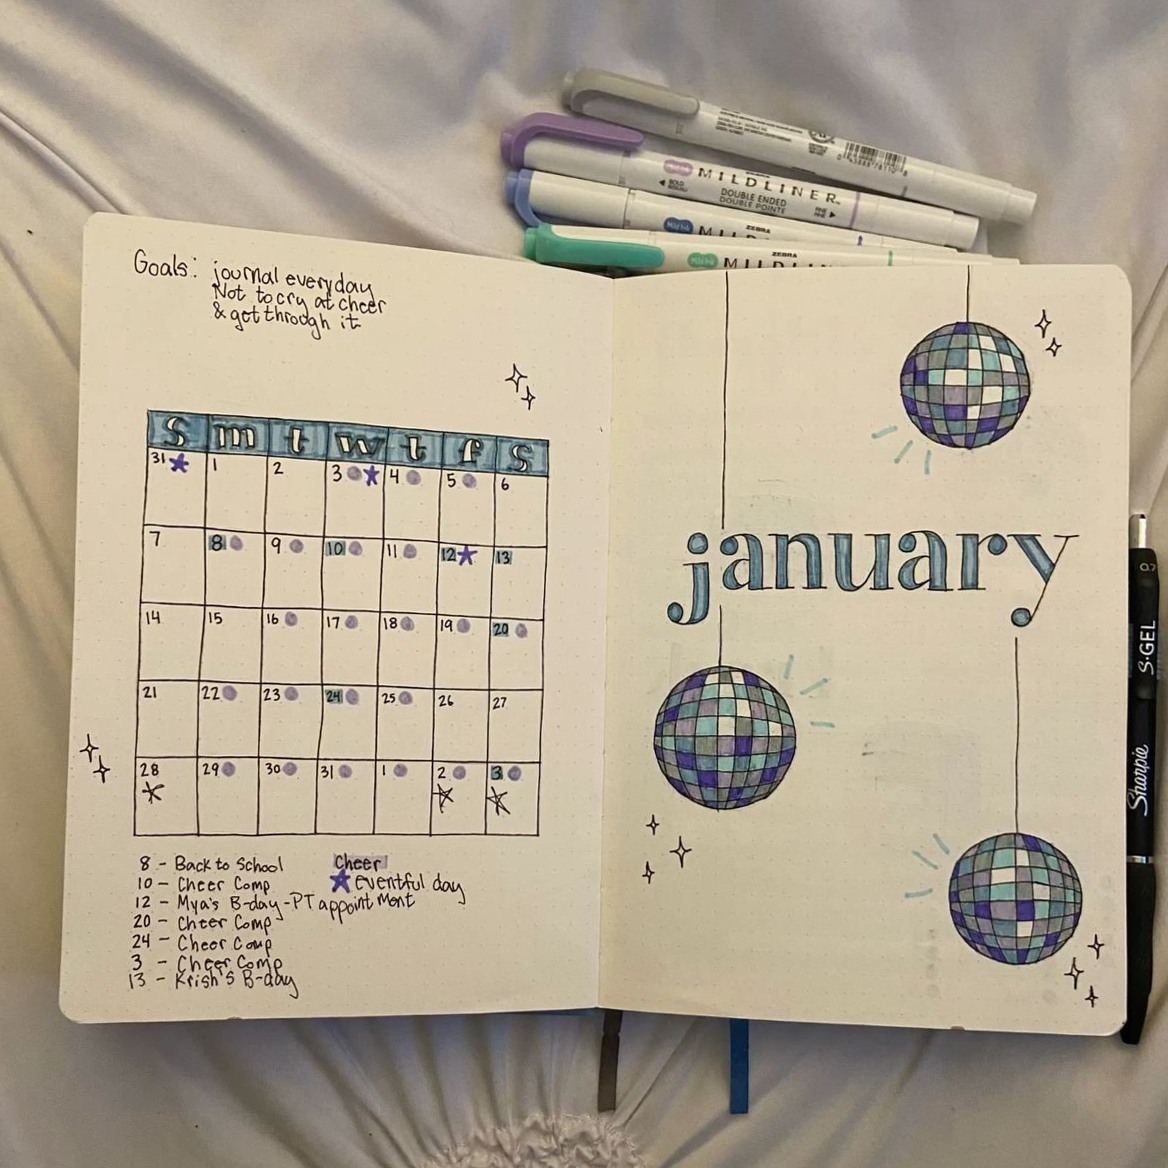 MILDLINER
BOLD
DOUBLE ENDED
DOUBLE POINTE
FINE
Mildliner
ZEBRA
ZEBRA
MILDLIN
Goals: journal everyday
Not to cry at cheer
& get through it
S m t w t f s
31 1 2 3 4 5 6
7 8 9 10 11 12 13
14 15 16 17 18 19 20
21 22 23 24 25 26 27
28 29 30 31 1 2 3
8 - Back to School
10 - Cheer Comp
12 - Mya's B-day - PT appointment
20 - Cheer Comp
24 - Cheer Comp
3 - Cheer Comp
13 - Krish's B-day
Cheer
eventful day
january
0.7
S·GEL
Sharpie